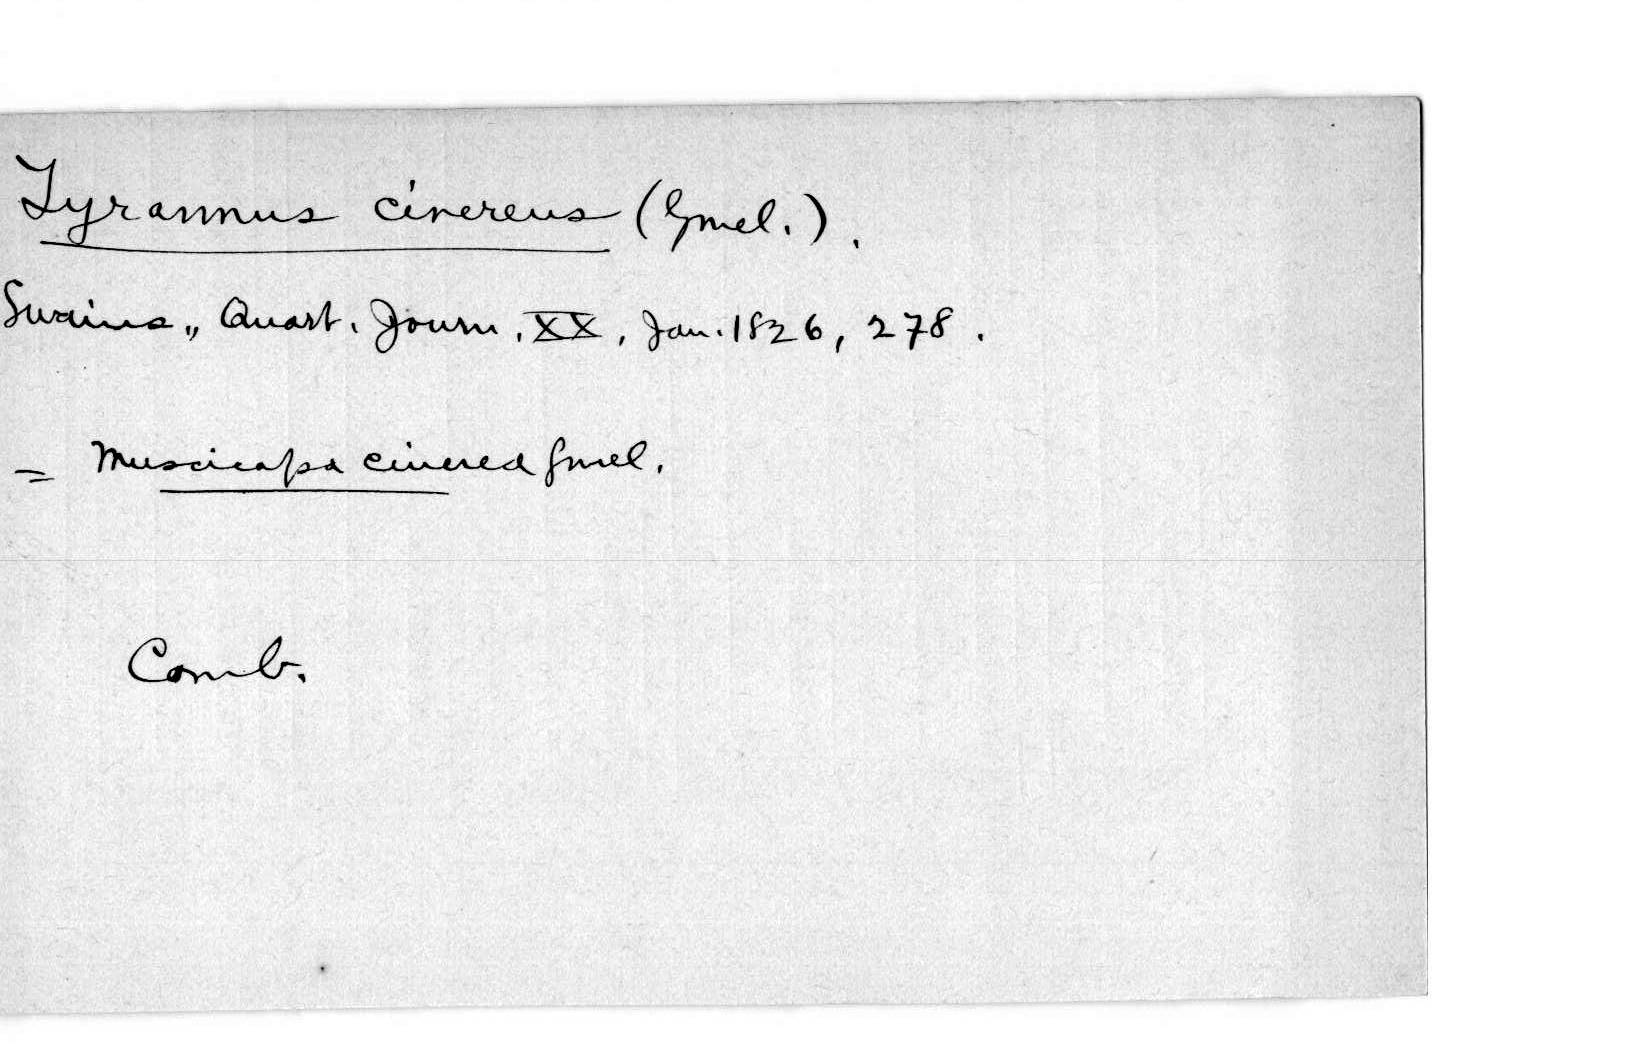 Tyrannus cinereus (Gmel.).
Swains., Quart. Journ. XX, Jan. 1826, 278.
= Muscicapa cinerea Gmel.
Comb.